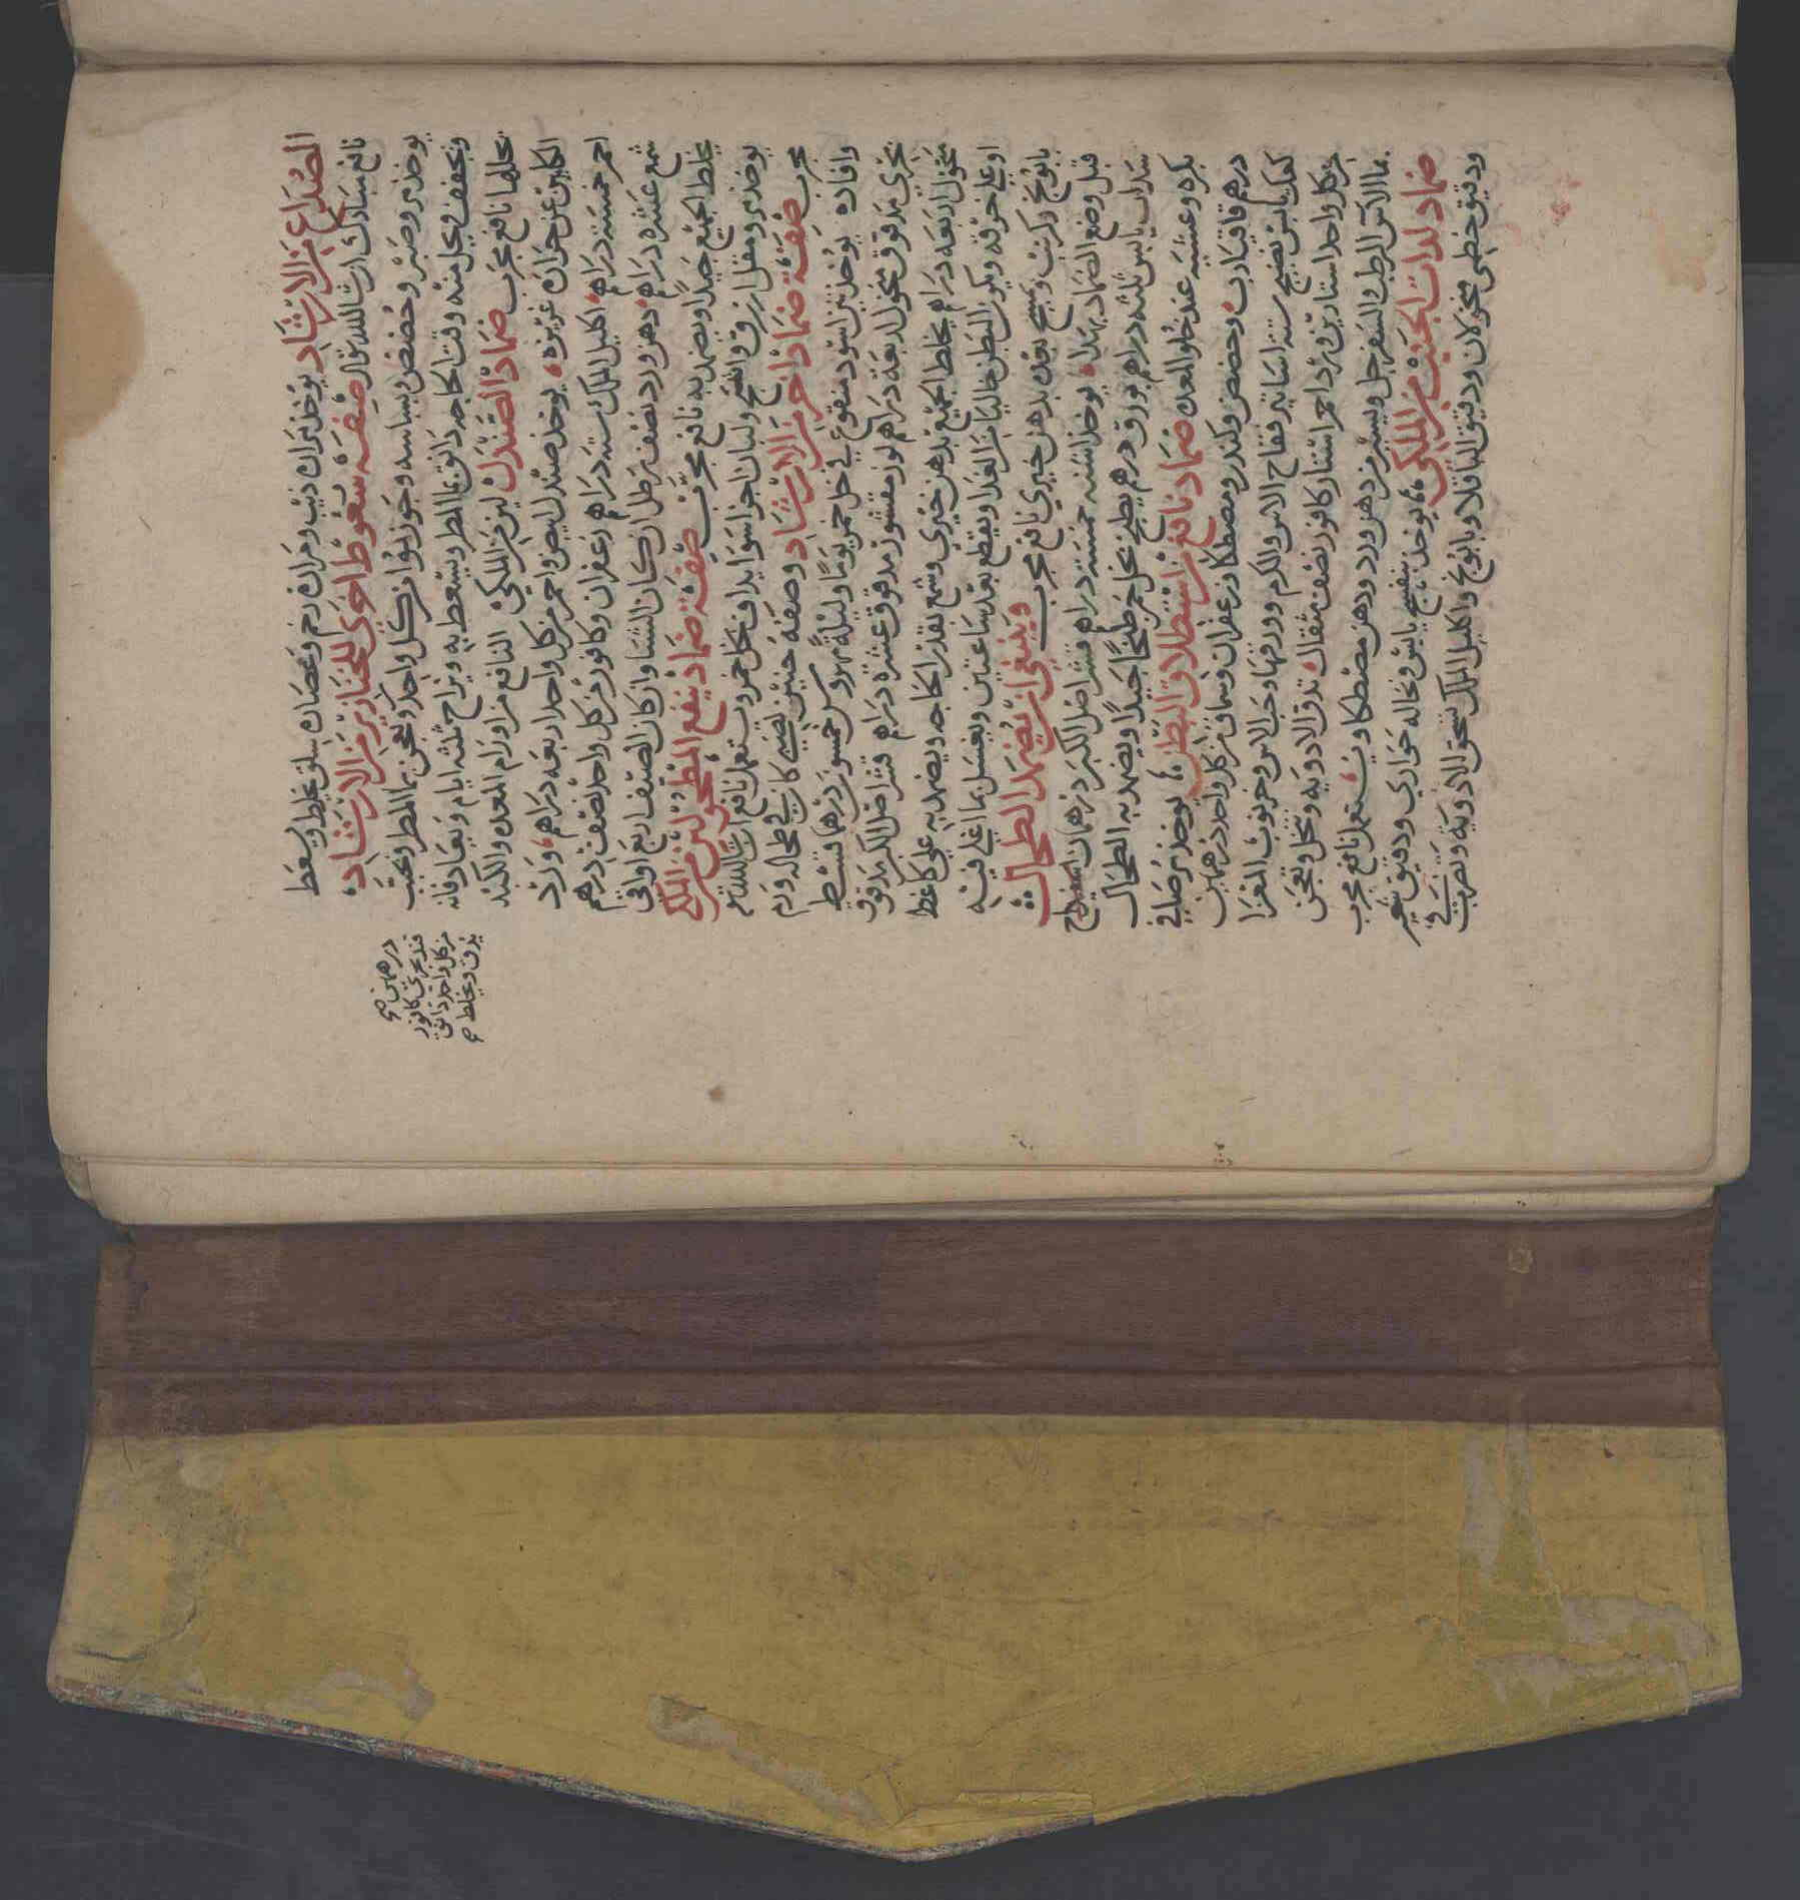 الصداع من الارشاد يوخذ مرارة ذيب ومرارة رخم وعصارة سلق يخلط ويسعط
نافع مبارك ان شا الله تعالى صفة سعوط اخر للخنازير من الارشاد
يوخذ مر وصبر وحضض وبسباسه وجوز بوا من كل واحد ويعجن بما المطر ويحبب
ويجفف ويحل منه وقت الحاجه دانق بما المطر ويسعط به ويراح ثلثه ايام ويعاد فانه
يحللها نافع مجرب ضماد الصندل لين من الملكي النافع من اورام المعده والكبد
الكاين عن حرارة غزيزه يوخذ صندل ابيض واحمر من كل واحد اربعه دراهم ورد
احمر خمسة دراهم اكليل الملك سته دراهم زعفران وكافور من كل واحد نصف درهم
شمع عشره دراهم دهن ورد نصف رطل ان كان الشتا وان كان الصيف اربع اواقي
يخلط الجميع جيدا ويضمد به نافع مجرب صفة ضماد ينفع المطحولين من الملكي
يوخذ مر ومقل ازرق واشج ولبان اجزا سوا يداف بخل خمر ويستعمل نافع ان شا الله تعالى
مجرب صفة ضماد اخر من الارشاد وصفه حنين لصبي كان في طحاله ورم
وافاده يوخذ تين اسود منقوع في خل خمر يوما وليلة مهروس خمسون درهما قسط
بحري مدقوق منخول اربعة دراهم لوز مقشور مدقوق عشرة دراهم قشر اصل الكبر مدقوق
منخول اربعه دراهم يخلط الجميع بدهن خيري وشمع بقدر الحاجه ويضمد به على كاغظ
او على خرقه ويكون البطن خاليا من الغدا ويقطع بعد ساعتين ويغسل بما اغلي فيه
بابونج وكرنب ويمسح بعده بدهن خيري نافع مجرب وينبغي ان يضمد الطحال
قبل وضع الضماد بهذا يوخذ اشنه خمسة دراهم قشر اصل الكبر درهمان
سذاب يابس ثلثه دراهم بورق درهم يطبخ بخل خمر طبخا جيدا ويضمد به الطحال
بكره وعشيه عند خلو المعده ضماد نافع من استطلاق البطن يوخذ مر صافي
درهم قاقيا رب وحضض وكندر ومصطكا وزعفران وسماق من كل واحد درهمين
كعك يابس نضيج ستة اساتير فقاح الاس والكرم وورقها وحب الاس وخرنوب المغزا
من كل واحد استارين ورد احمر استار كافور نصف مثقال تدق الادويه وتنخل وتعجن
بما الاس الرطب والسفرجل ويسير من دهن ورد ودهن مصطكا ويستعمل نافع مجرب
ضماد لذات الجنب من الملكي يوخذ بنفسج يابس ونخاله حواري ودقيق شعير
ودقيق خطمي منخولان ودقيق الباقلا وبابونج واكليل الملك تسحق الادوية وتضرب في
درهمين صح
كافور
من كل واحد دانق
يدق ويخلط صح